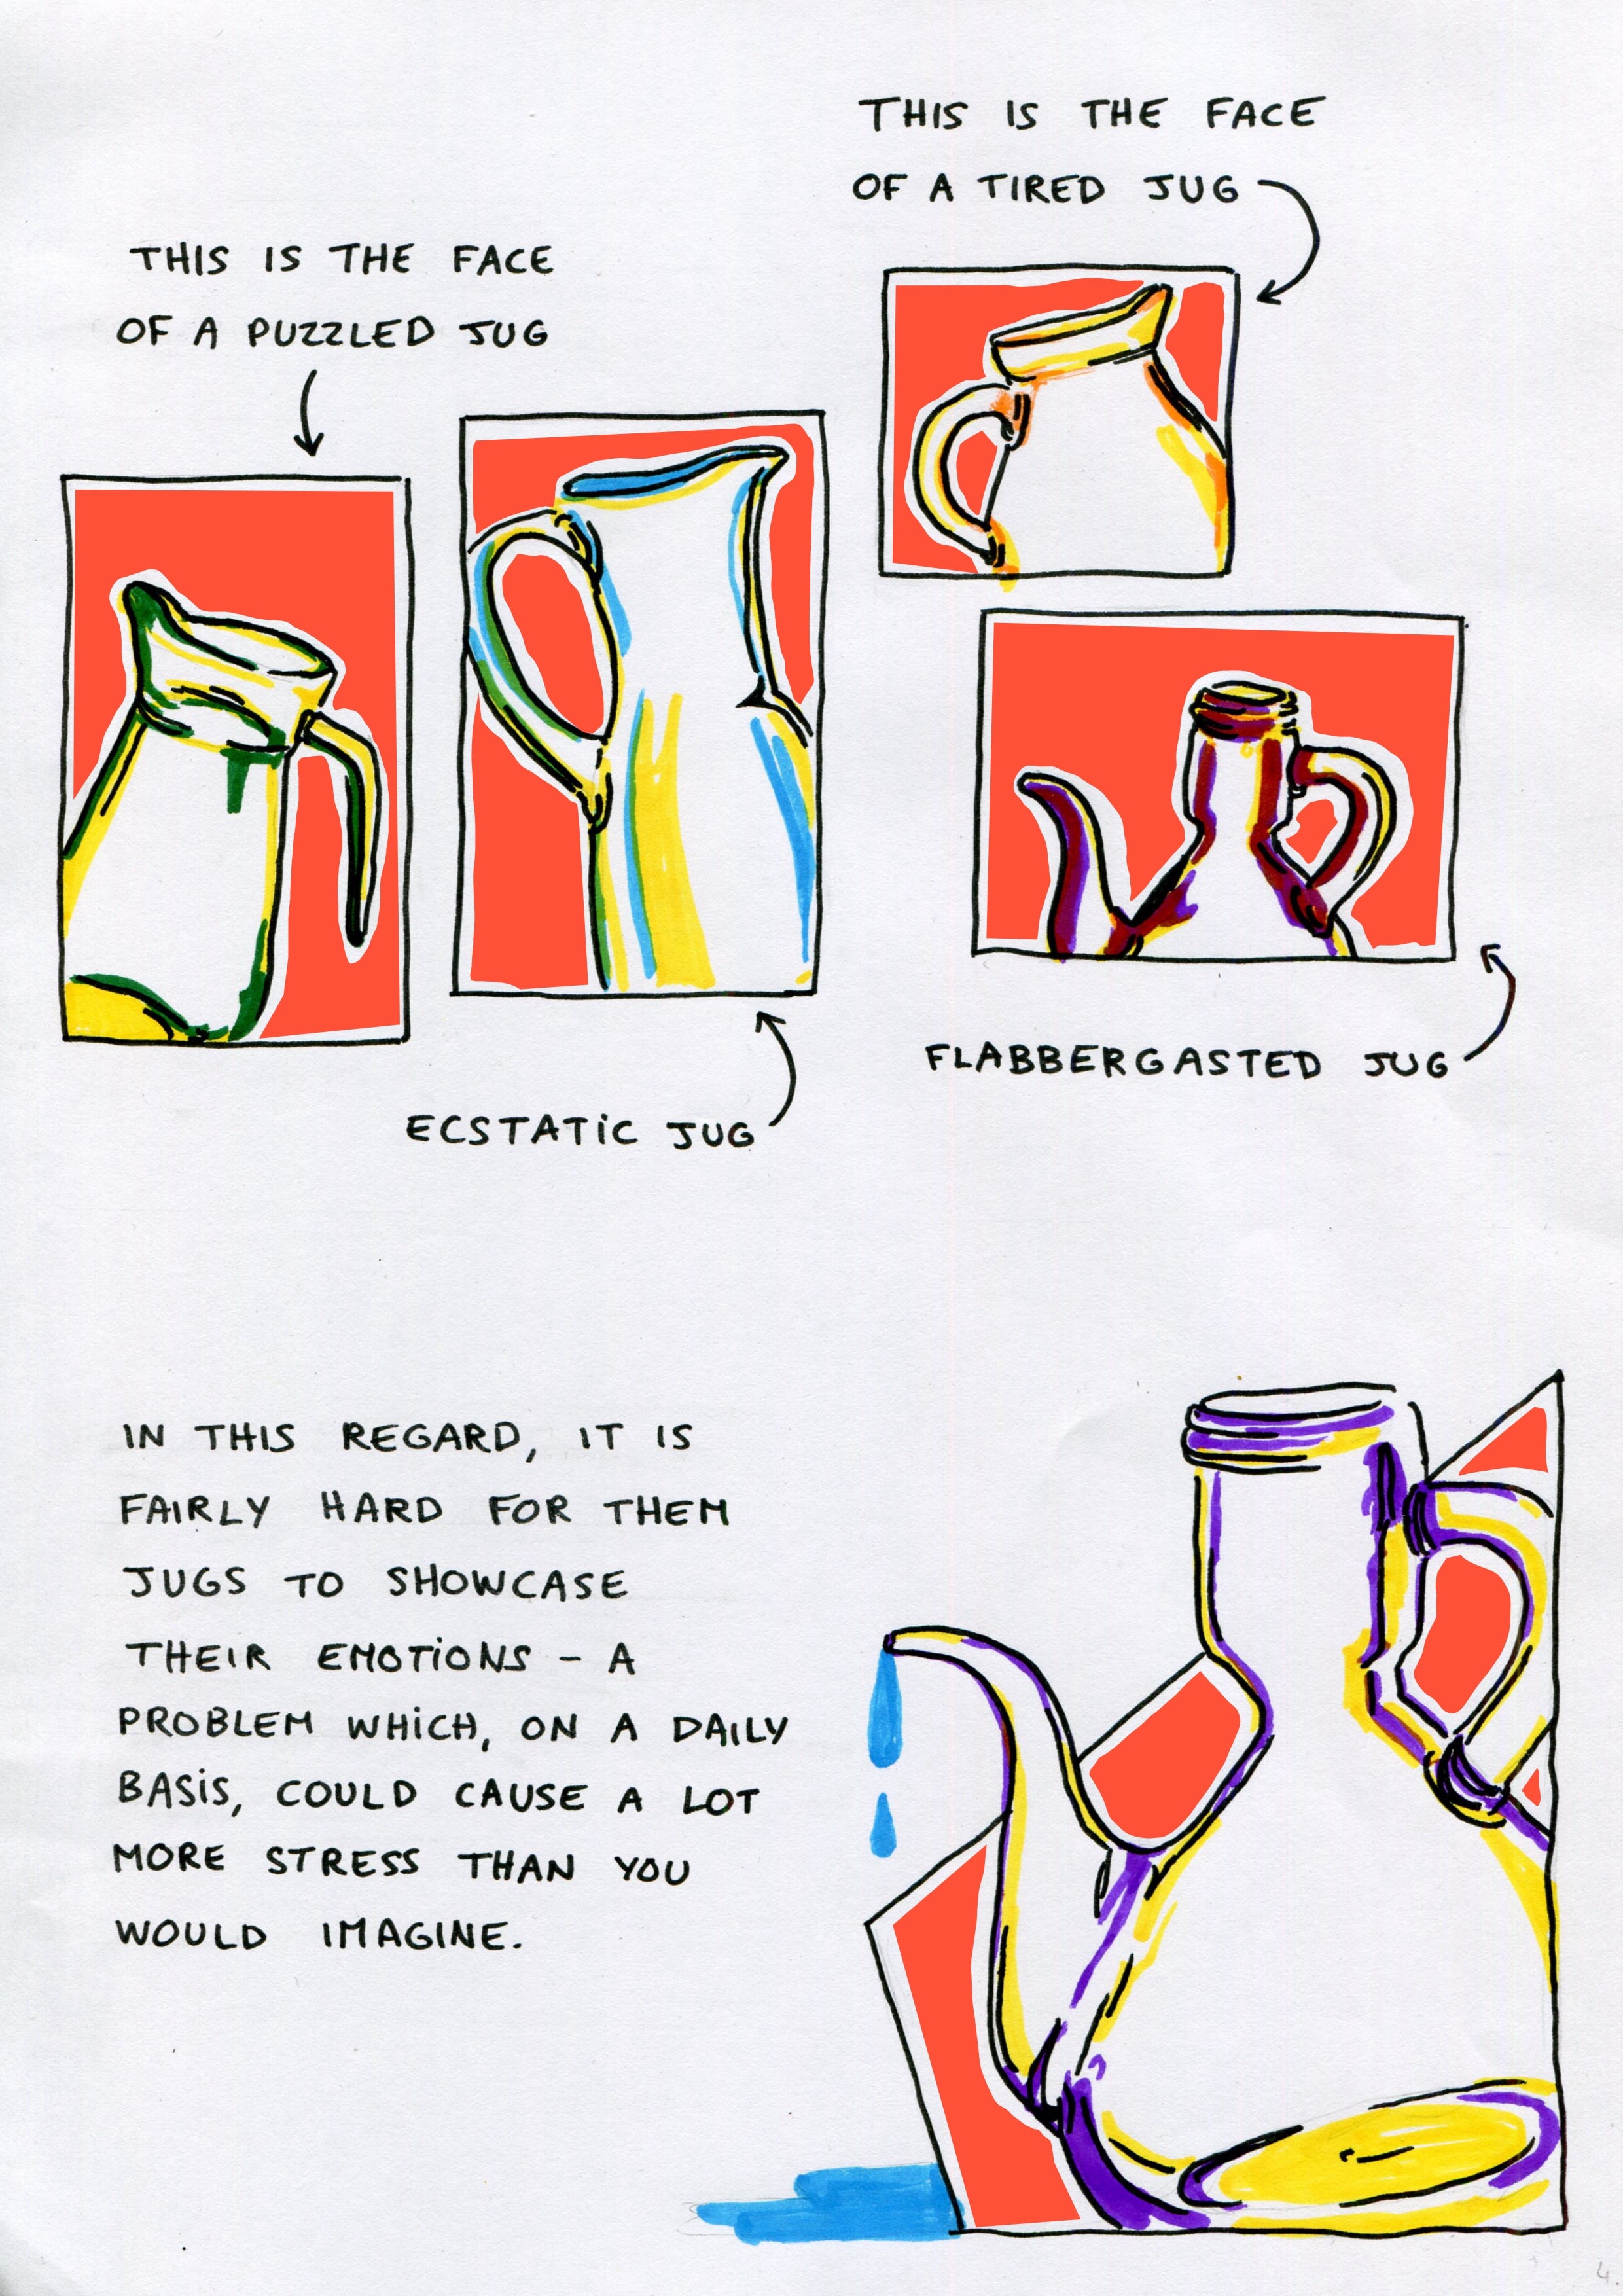 THIS IS THE FACE
OF A TIRED JUG
THIS IS THE FACE
OF A PUZZLED JUG
FLABBERGASTED JUG
ECSTATIC JUG
IN THIS REGARD, IT IS
FAIRLY HARD FOR THEM
JUGS TO SHOWCASE
THEIR EMOTIONS - A
PROBLEM WHICH, ON A DAILY
BASIS, COULD CAUSE A LOT
MORE STRESS THAN YOU
WOULD IMAGINE.
4.